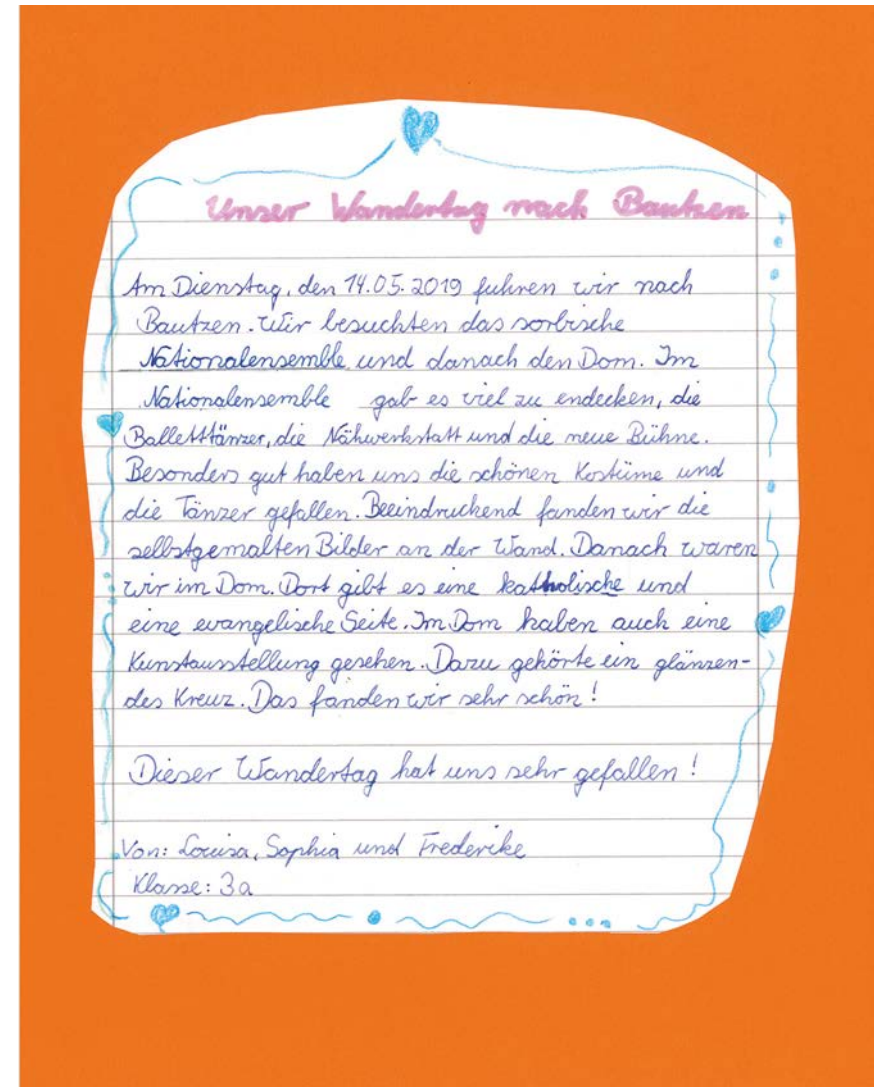 Unser Wandertag nach Bautzen
Am Dienstag, den 14.05.2019 fuhren wir nach
Bautzen. Wir besuchten das sorbische
Nationalensemble und danach den Dom. Im
Nationalensemble gab es viel zu endecken, die
Balletttänzer, die Nähwerkstatt und die neue Bühne.
Besonders gut haben uns die schönen Kostüme und
die Tänzer gefallen. Beeindruckend fanden wir die
selbstgemalten Bilder an der Wand. Danach waren
wir im Dom. Dort gibt es eine katholische und
eine evangelische Seite. Im Dom haben auch eine
Kunstausstellung gesehen. Dazu gehörte ein glänzen-
des Kreuz. Das fanden wir sehr schön!
Dieser Wandertag hat uns sehr gefallen!
Von: Louisa, Sophia und Frederike
Klasse: 3a